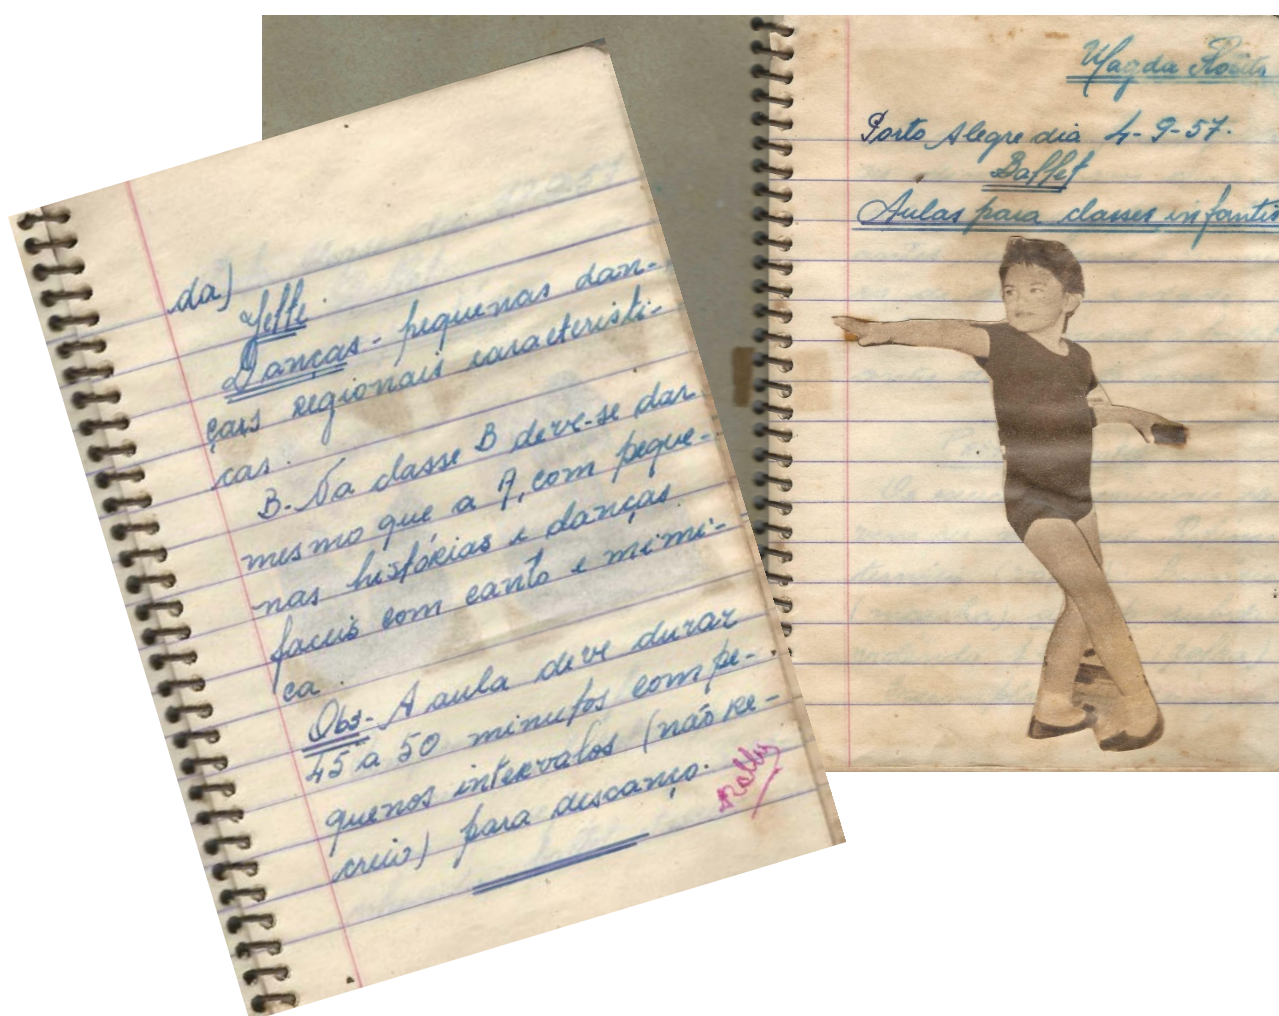 da)
Jetté
Danças - pequenas dan-
ças regionais caracteristi-
cas.
B - Na classe B deve-se dar
mesmo que a A, com peque-
nas histórias e danças
faceis com canto e mimi-
ca.
Obs - A aula deve durar
45 a 50 minutos com pe-
quenos intervalos (não re-
creio) para descanço.
Magda
Porto Alegre dia 4-9-57.
Ballet
Aulas para classes infantis